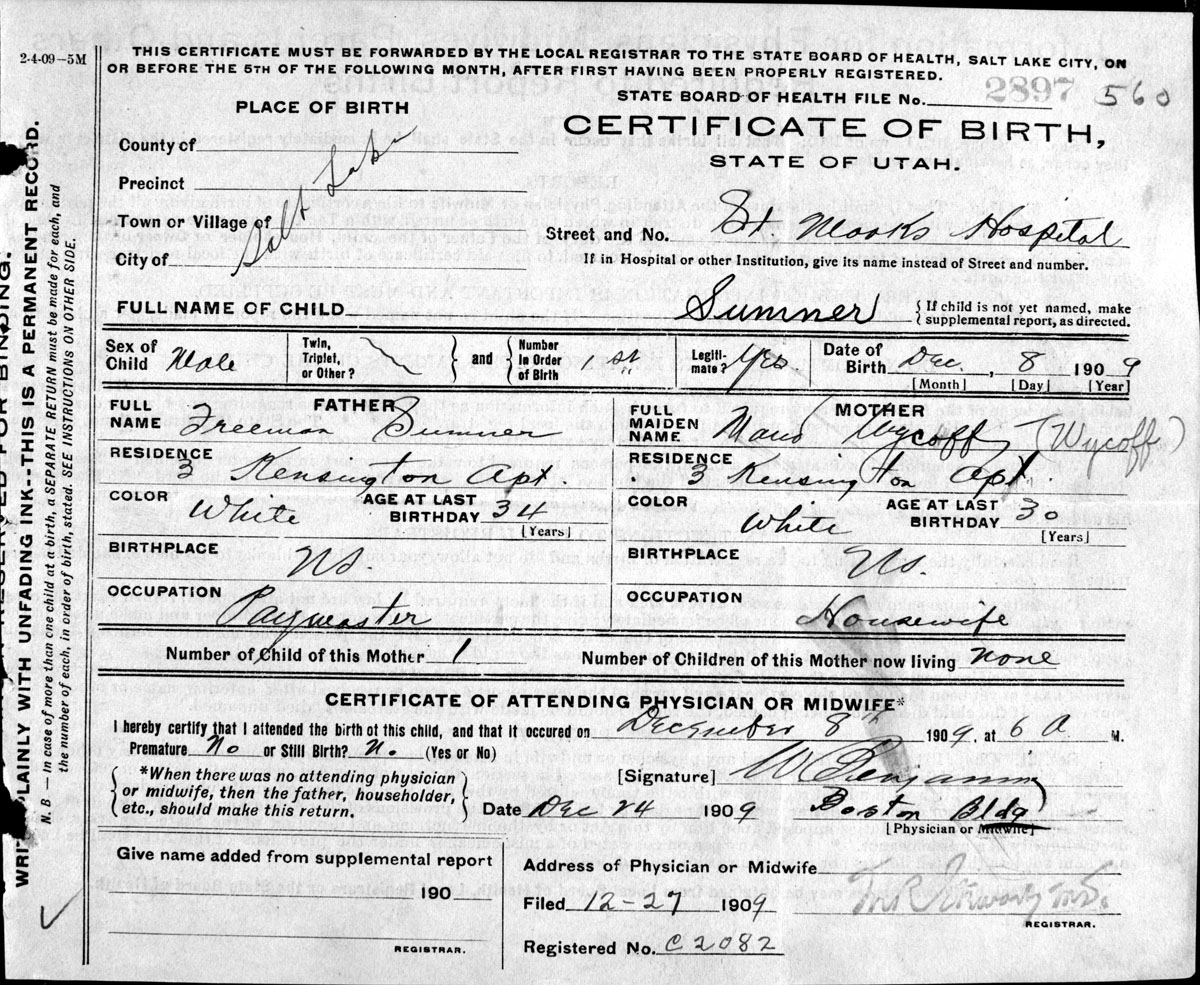 2-4-09-5M
THIS CERTIFICATE MUST BE FORWARDED BY THE LOCAL REGISTRAR TO THE STATE BOARD OF HEALTH, SALT LAKE CITY, ON
OR BEFORE THE 5TH OF THE FOLLOWING MONTH, AFTER FIRST HAVING BEEN PROPERLY REGISTERED.
STATE BOARD OF HEALTH FILE No. 2897 560
PLACE OF BIRTH
CERTIFICATE OF BIRTH,
STATE OF UTAH.
County of
Precinct
Town or Village of
City of
Salt Lake
Street and No. St Marks Hospital
If in Hospital or other Institution, give its name instead of Street and number.
FULL NAME OF CHILD Sumner { If child is not yet named, make
supplemental report, as directed.
Sex of Child Male
Twin, Triplet, or Other?
and
Number In Order of Birth 1st
Legiti- mate? Yes
Date of Birth Dec. , 8 1909
[Month] [Day] [Year]
FATHER
FULL NAME Freeman Sumner
RESIDENCE 3 Kensington Apt.
COLOR White AGE AT LAST BIRTHDAY 34
[Years]
BIRTHPLACE US.
OCCUPATION Paymaster
MOTHER
FULL MAIDEN NAME Maud Wycoff (Wycoff)
RESIDENCE 3 Kensington Apt.
COLOR White AGE AT LAST BIRTHDAY 30
[Years]
BIRTHPLACE US.
OCCUPATION Housewife
Number of Child of this Mother 1 Number of Children of this Mother now living None
CERTIFICATE OF ATTENDING PHYSICIAN OR MIDWIFE*
I hereby certify that I attended the birth of this child, and that it occured on December 8th 1909. at 6 A M.
Premature No or Still Birth? No (Yes or No)
{ *When there was no attending physician
or midwife, then the father, householder,
etc., should make this return. }
[Signature] W Benjamin
Date Dec 24 1909 Boston Bldg
[Physician or Midwife]
Give name added from supplemental report
190
REGISTRAR.
Address of Physician or Midwife
Filed 12-27 1909
REGISTRAR.
Registered No. C2082
WRITE PLAINLY WITH UNFADING INK--THIS IS A PERMANENT RECORD.
N. B. — In case of more than one child at a birth, a SEPARATE RETURN must be made for each, and
the number of each, in order of birth, stated. SEE INSTRUCTIONS ON OTHER SIDE.